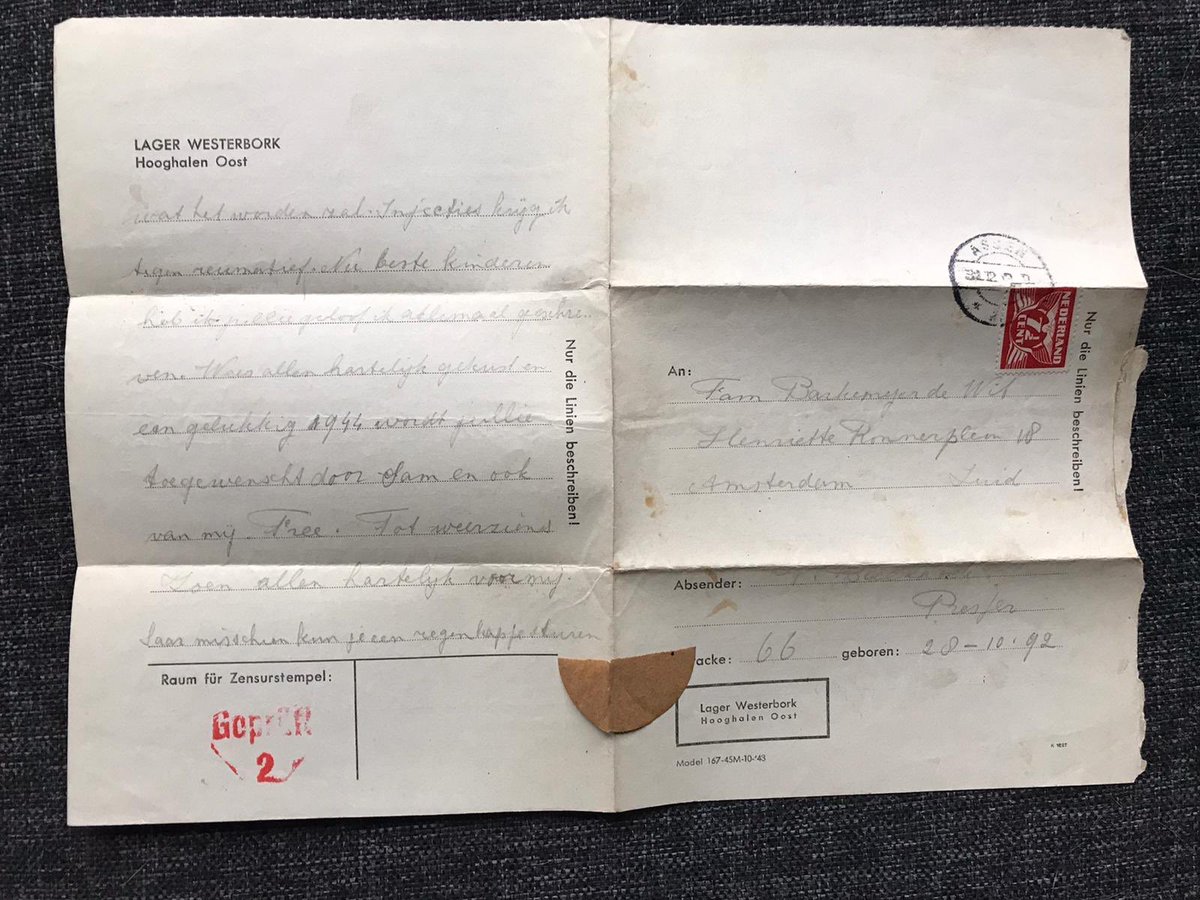 LAGER WESTERBORK
Hooghalen Oost
wat het worden zal. Injecties krijg ik
tegen reumatief. Nu beste kinderen
heb ik jullie geloof ik allemaal geschre-
ven. Wees allen hartelijk gekust en
een gelukkig 1944 wordt jullie
toegewenscht door Sam en ook
van mij Free. Tot weerziens
Zoen allen hartelijk voor mij.
Saar misschien kun je een regenkapje sturen
Nur die Linien beschreiben!
Raum für Zensurstempel:
Geprüft
2
ASSEN
NEDERLAND
7½
CENT
Nur die Linien beschreiben!
An:
Fam de Wit
Henriette Ronnerplein 18
Amsterdam Zuid
Absender:
Presser
acke: 66 geboren: 28-10-92
Lager Westerbork
Hooghalen Oost
Model 167-45M-10-'43